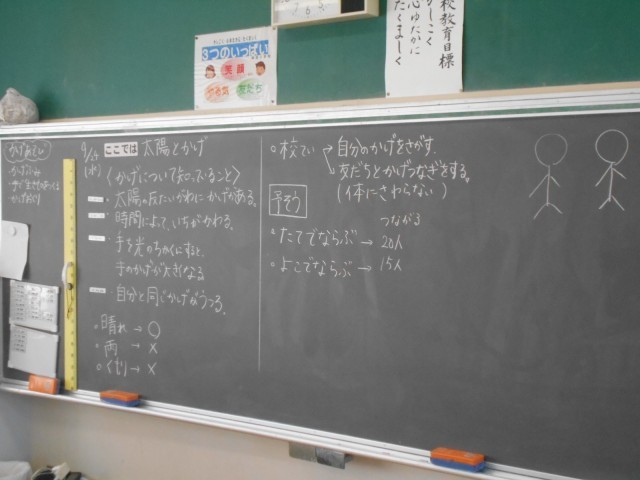 3つのいっぱい
笑顔
友だち
校教育目標
かしこく
心ゆたかに
たくましく
かげあそび
かげふみ
9/27
(水)
ここでは 太陽とかげ
〈かげについて知っていること〉
太陽の反たいがわにかげがある。
時間によって、いちがかわる。
手を光のちかくにすると、
手のかげが大きくなる
自分と同じかげがうつる。
。晴れ → ○
。雨 → ×
。くもり → ×
。校てい → 自分のかげをさがす。
→ 友だちとかげつなぎをする。
(体にさわらない)
予そう
つながる
。たてでならぶ → 20人
。よこでならぶ → 15人